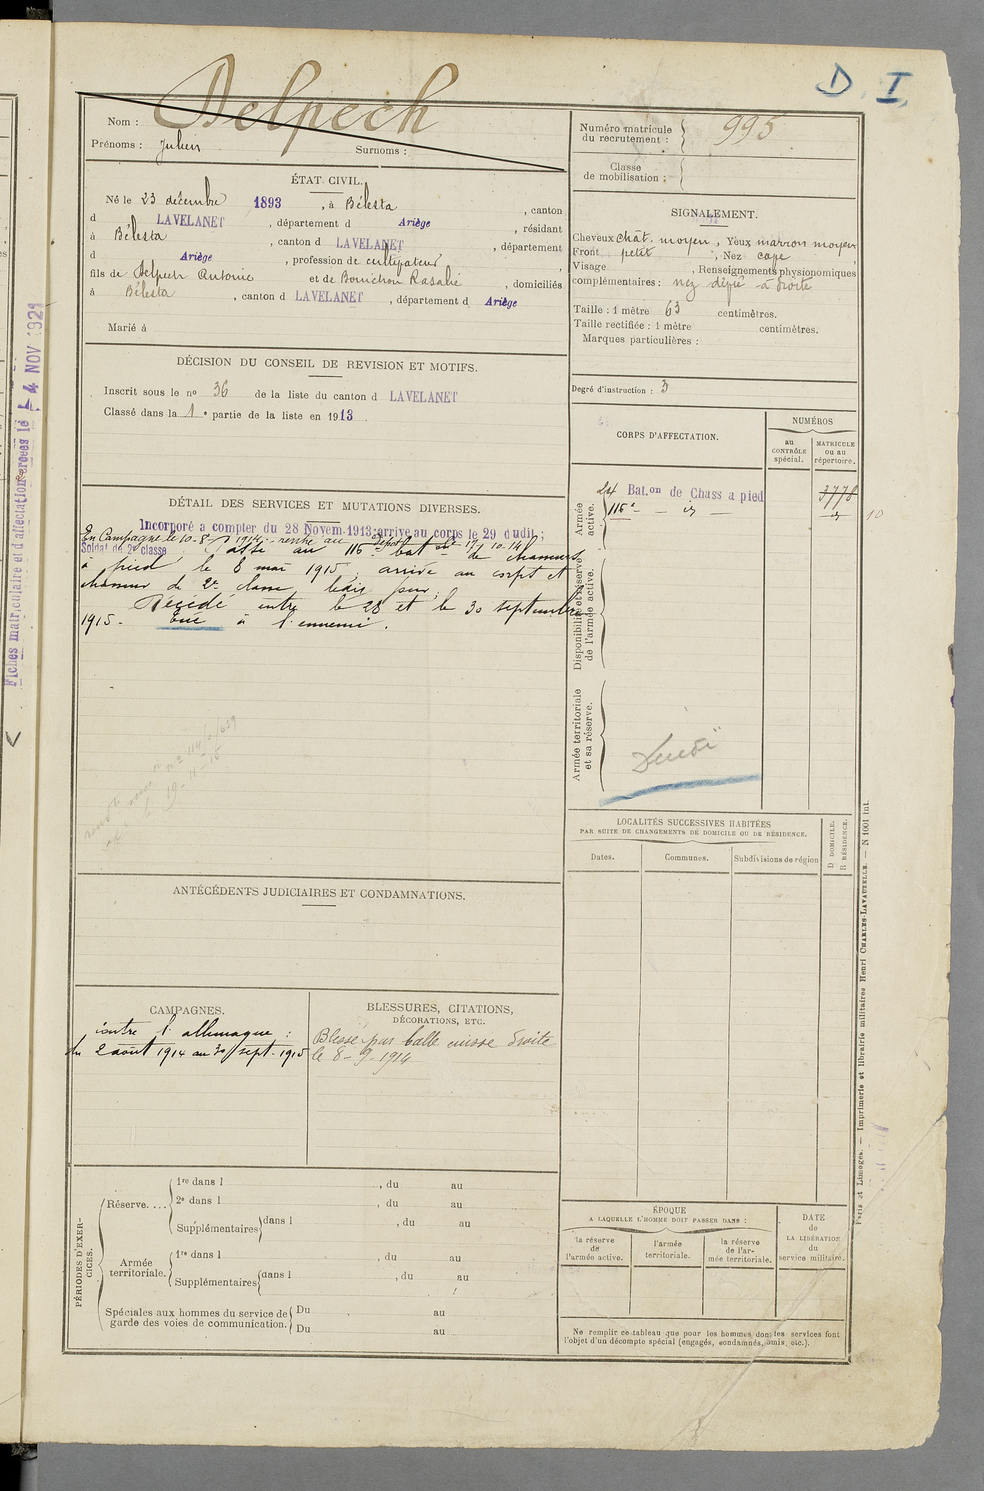 D. I.
Delpech
Nom :
Prénoms : Julien Surnoms :
Numéro matricule
du recrutement : 995
Classe
de mobilisation :
ÉTAT CIVIL.
Né le 23 décembre 1893, à Bélesta, canton
d LAVELANET, département d Ariège, résidant
à Bélesta, canton d LAVELANET, département
d Ariège, profession de cultivateur,
fils de Delpech Antoine et de Bonichon Rosalie, domiciliés
à Bélesta, canton d LAVELANET, département d Ariège
Marié à
SIGNALEMENT.
Cheveux chât. moyen, Yeux marron moyen
Front petit, Nez cave
Visage , Renseignements physionomiques
complémentaires : nez dépié à droite
Taille : 1 mètre 63 centimètres.
Taille rectifiée : 1 mètre centimètres.
Marques particulières :
Degré d'instruction : 3
DÉCISION DU CONSEIL DE REVISION ET MOTIFS.
Inscrit sous le no 36 de la liste du canton d LAVELANET
Classé dans la 1e partie de la liste en 1913.
CORPS D'AFFECTATION.
NUMÉROS
au
CONTRÔLE
spécial.
MATRICULE
ou au
répertoire.
Armée
active.
24 Bat.on de Chass a pied 3778
116e - id - id 10
Disponibilité et réserve
de l'armée active.
Armée territoriale
et sa réserve.
DÉTAIL DES SERVICES ET MUTATIONS DIVERSES.
Incorporé a compter du 28 Novem. 1913, arrive au corps le 29 dudit ;
En Campagne le 10-8-1914. rentre au Dépôt le 17-10-14
Soldat de 2e classe. Passé au 116 bat de chasseurs
à pied le 8 mai 1915, arrivé au corps et
chasseur de 2e classe ledit jour.
Décédé entre le 28 et le 30 septembre
1915. Tué à l'ennemi.
LOCALITÉS SUCCESSIVES HABITÉES
PAR SUITE DE CHANGEMENTS DE DOMICILE OU DE RÉSIDENCE.
Dates.
Communes.
Subdivisions de région
D DOMICILE.
R RÉSIDENCE.
ANTÉCÉDENTS JUDICIAIRES ET CONDAMNATIONS.
CAMPAGNES.
contre l'allemagne :
du 2 août 1914 au 30 sept. 1915
BLESSURES, CITATIONS,
DÉCORATIONS, ETC.
Blessé par balle cuisse droite
le 8-9-1914
PÉRIODES D'EXER-
CICES.
Réserve....
1re dans l , du au
2e dans l , du au
Supplémentaires dans l , du au
Armée
territoriale.
1re dans l , du au
Supplémentaires dans l , du au
Spéciales aux hommes du service de
garde des voies de communication.
Du au
Du au
ÉPOQUE
A LAQUELLE L'HOMME DOIT PASSER DANS :
la réserve
de
l'armée active.
l'armée
territoriale.
la réserve
de l'ar-
mée territoriale.
DATE
de
LA LIBÉRATION
du
service militaire.
Ne remplir ce tableau que pour les hommes dont les services font
l'objet d'un décompte spécial (engagés, condamnés, omis, etc.).
Paris et Limoges. — Imprimerie et librairie militaires Henri CHARLES-LAVAUZELLE. — N 1001 int.
Fiches matriculaire et d'affectation créées le 4 NOV 1921